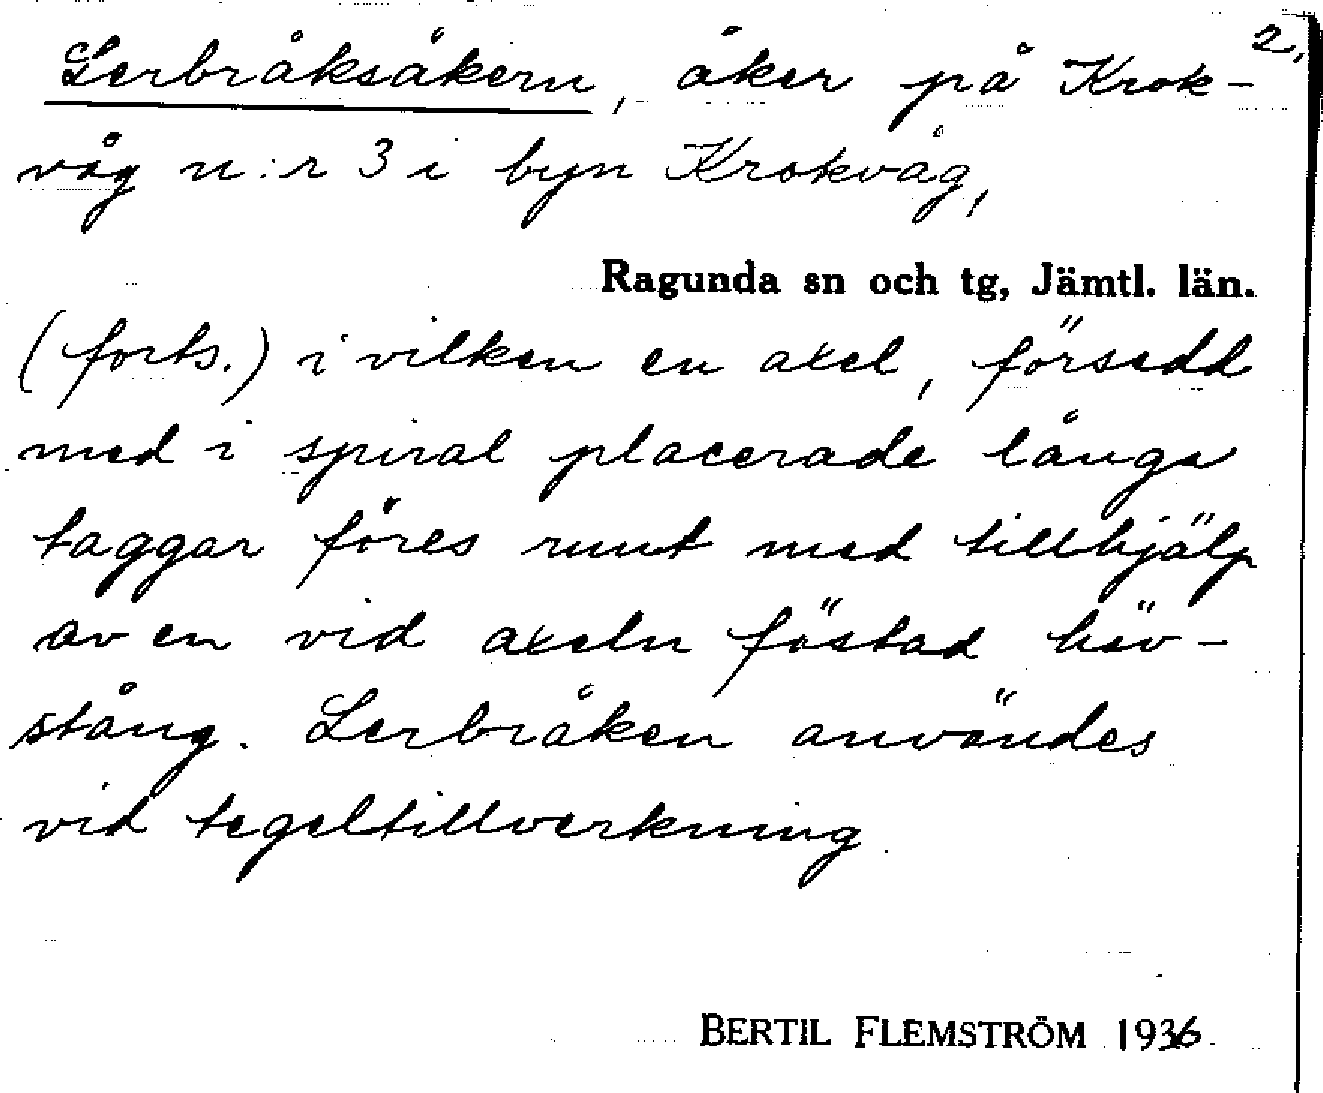 2.
Lerbråksåkern, åker på Krok-
våg n:r 3 i byn Krokvåg,
Ragunda sn och tg, Jämtl. län.
(forts.) i vilken en axel, försedd
med i spiral placerade långa
taggar föres runt med tillhjälp
av en vid axeln fästad häv-
stång. Lerbråken användes
vid tegeltillverkning.
BERTIL FLEMSTRÖM 1936